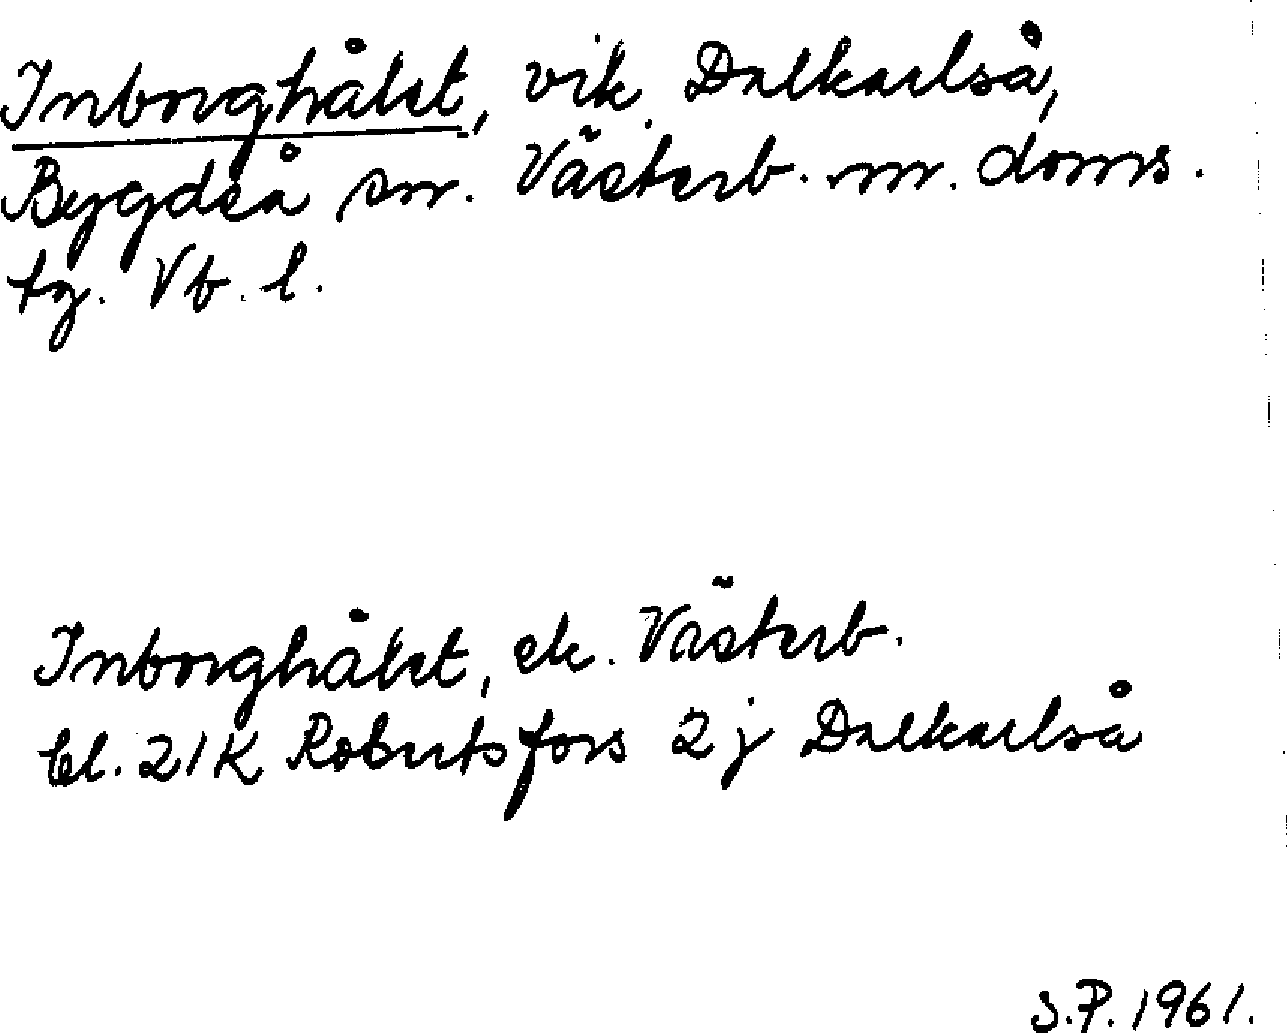 Inborghålet, vik, Dalkarlså,
Bygdeå sn. Västerb. m. doms.
tg. Vb. l.
Inborghålet, ek. Västerb.
bl. 21K Robertsfors 2 j Dalkarlså
S.P. 1961.